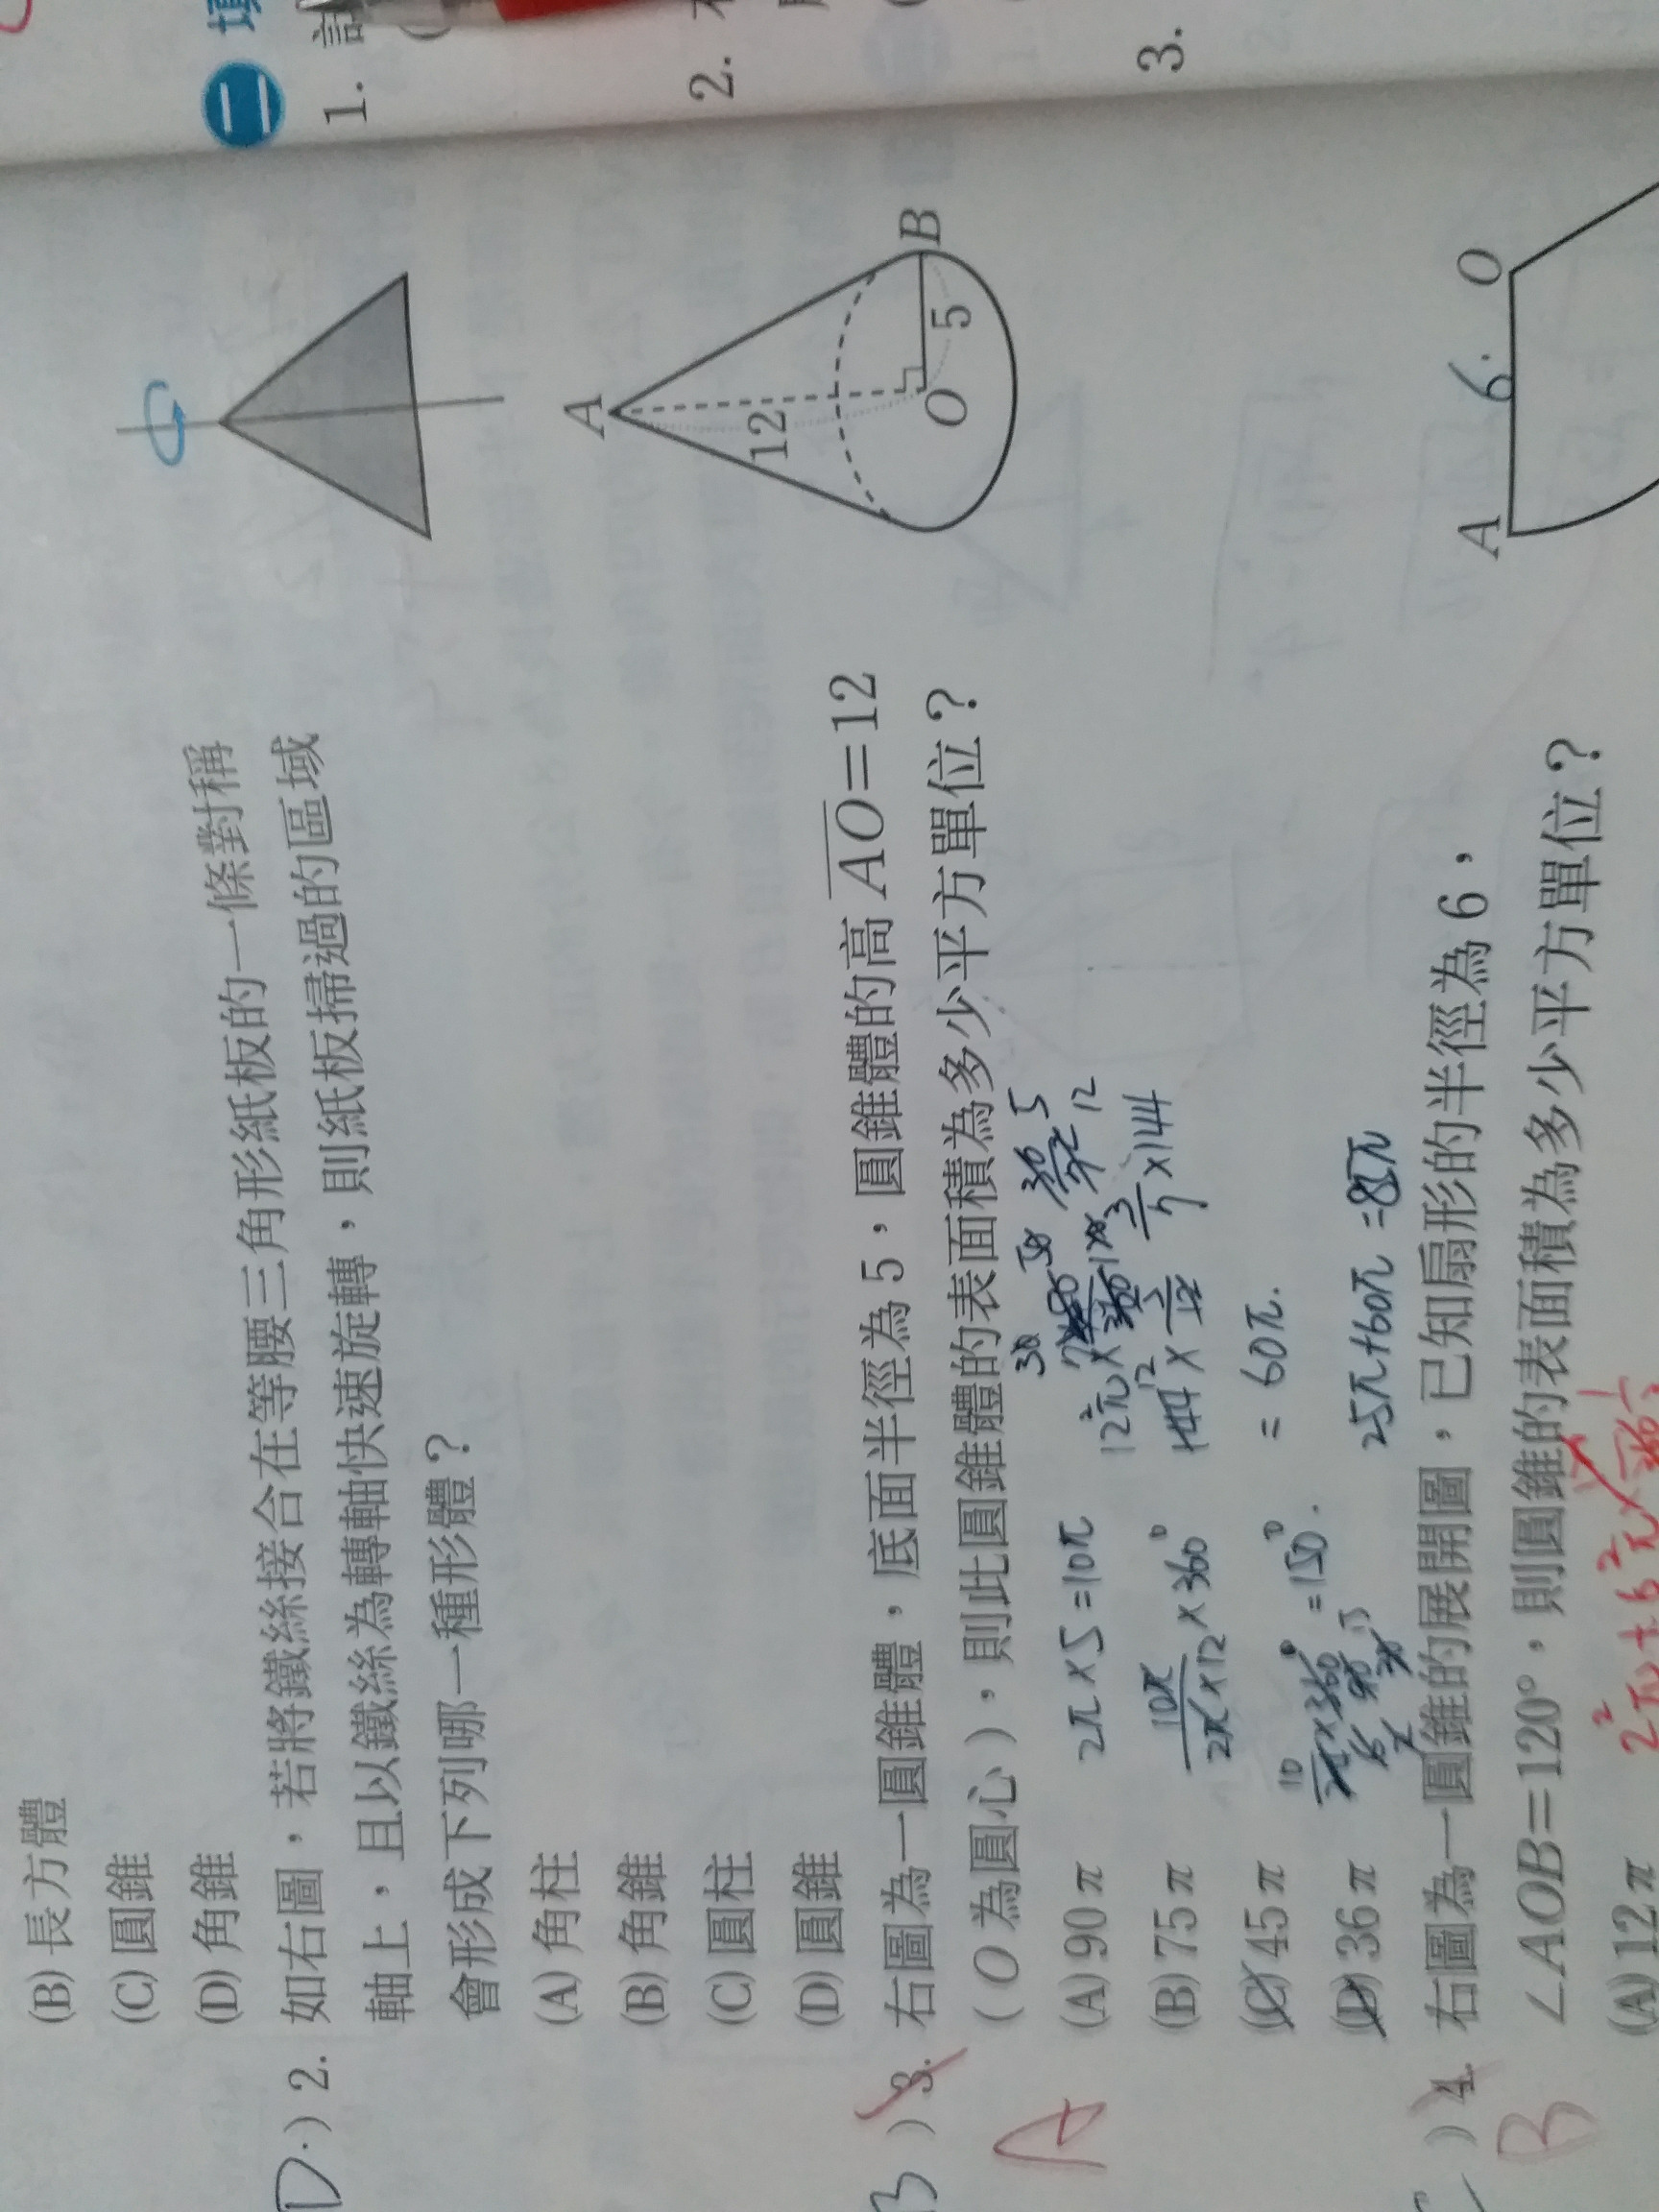 (B) 長方體
(C) 圓錐
(D) 角錐
D. ) 2. 如右圖,若將鐵絲接合在等腰三角形紙板的一條對稱
軸上,且以鐵絲為轉軸快速旋轉,則紙板掃過的區域
會形成下列哪一種形體?
(A) 角柱
(B) 角錐
(C) 圓柱
(D) 圓錐
B ) 3. 右圖為一圓錐體,底面半徑為 5,圓錐體的高 AO=12
A
( O 為圓心 ),則此圓錐體的表面積為多少平方單位?
(A) 90π
(B) 75π
(C) 45π
(D) 36π
2π×5=10π
10π/2π×12 ×360°
=150°.
=60π.
25π+60π=85π
A
12
O
5
B
) 4. 右圖為一圓錐的展開圖,已知扇形的半徑為 6,
B
∠AOB=120°,則圓錐的表面積為多少平方單位?
(A) 12π
A
6
O
二 填
1.
2.
3.